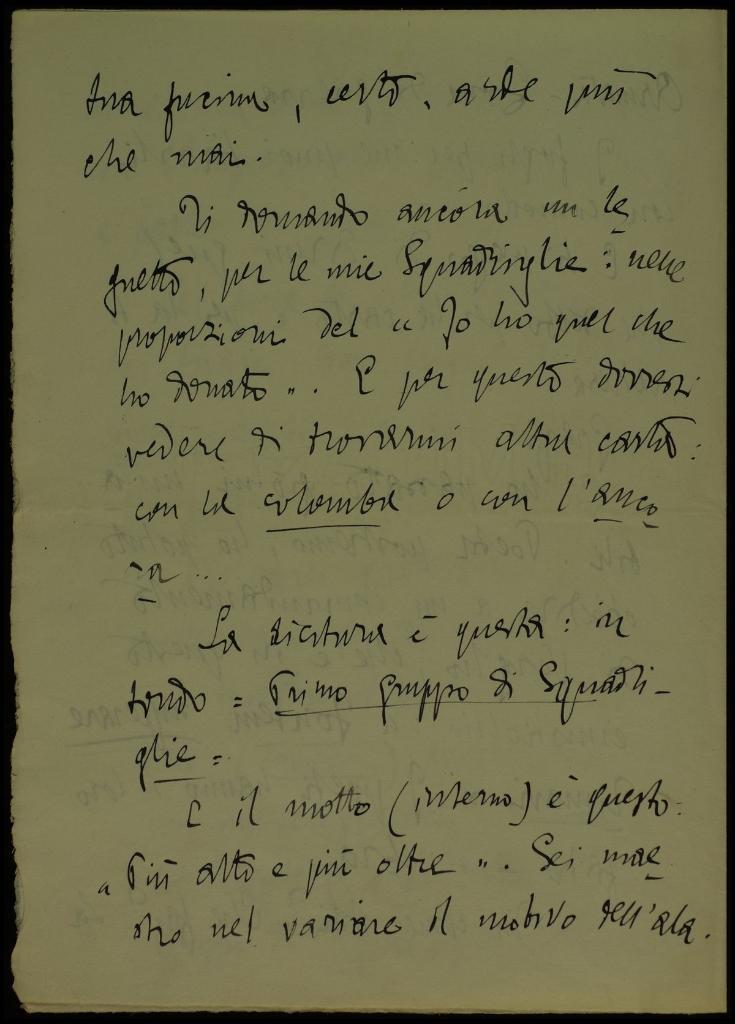 tua fucina, certo, arde più
che mai.
Ti domando ancora un le
gnetto, per le mie Squadriglie: nelle
proporzioni del "Io ho quel che
ho donato". E per questo dovresti
vedere di trovarmi altra carta:
con la colomba o con l'anco
ra...
La dicitura è questa: in
tondo = Primo gruppo di Squadri-
glie =
E il motto (interno) è questo:
"Più alto e più oltre". Sei mae
stro nel variare il motivo dell'ala.